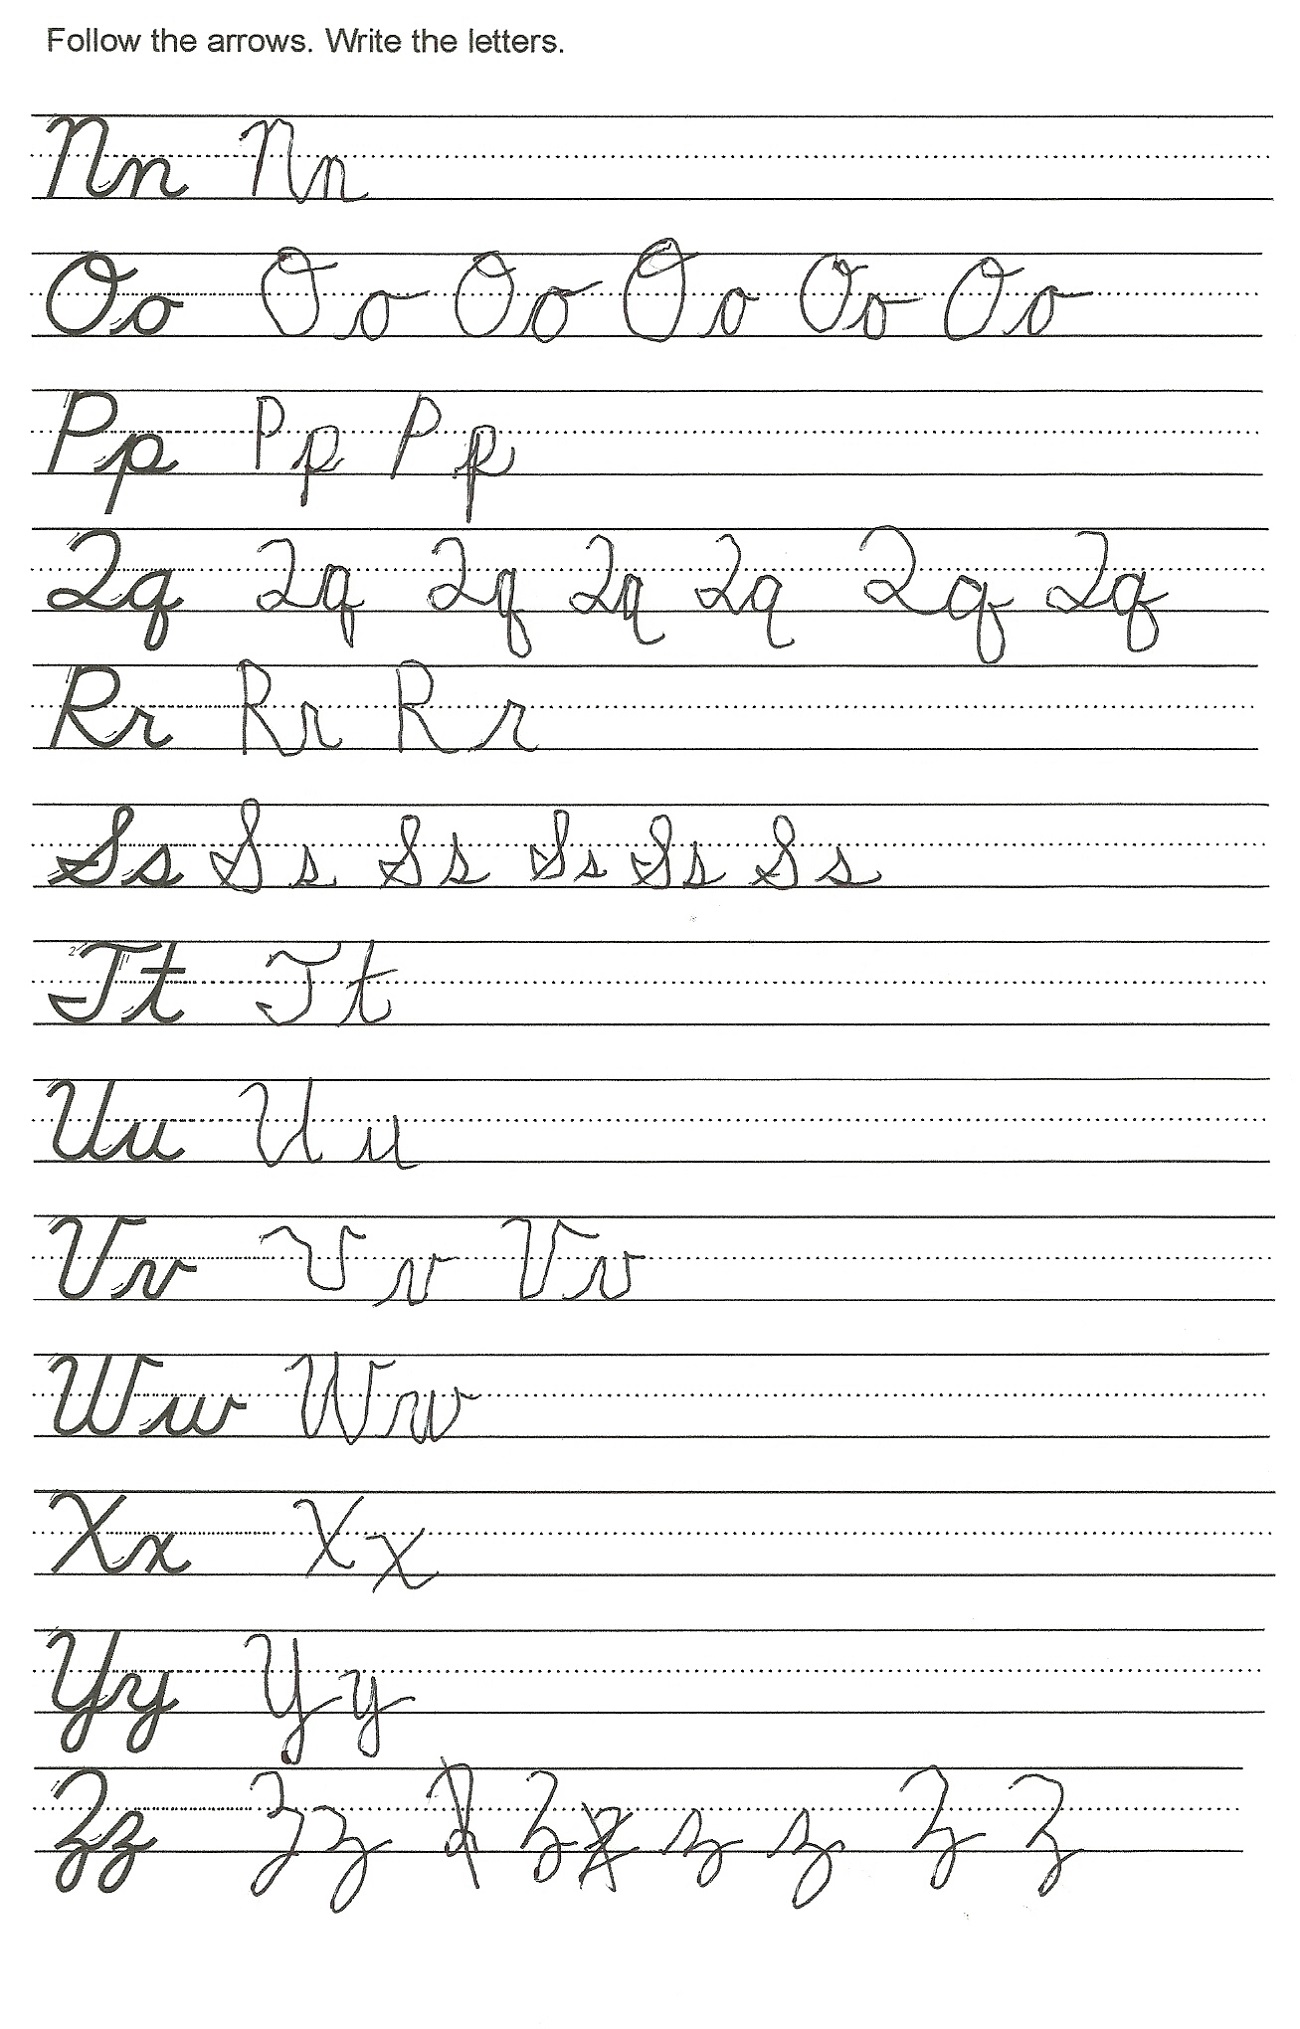 Follow the arrows. Write the letters.
Nn Nn
Oo Oo Oo Oo Oo Oo
Pp Pp Pp
Qq Qq Qq Qq Qq Qq Qq
Rr Rr Rr
Ss Ss Ss Ss Ss Ss
Tt Tt
Uu Uu
Vv Vv Vv
Ww Ww
Xx Xx
Yy Yy
Zz Zz Z z z Z Z